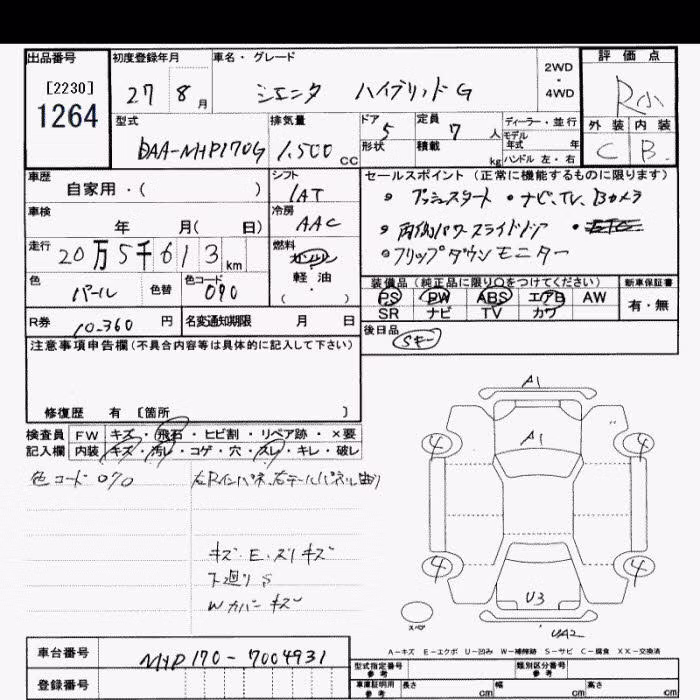 出品番号
[2230]
1264
初度登録年月
27 8 月
車名・グレード
シエンタ ハイブリッドG
2WD
・
4WD
評価点
R小
外装 内装
C B
型式
DAA-NHP170G
排気量
1.500 CC
ドア 5
形状
定員 7 人
積載 kg
ディーラー・並行
モデル
年式 年
ハンドル 左・右
車歴
自家用・( )
シフト
IAT
セールスポイント (正常に機能するものに限ります)
・プッシュスタート ・ナビ、TV、Bカメラ
・両側パワースライドドア ・ETC
・フリップダウンモニター
車検
年 月( 日)
冷房
AAC
走行
20万5千613 km
燃料
ガソリン
・
軽・油
・
( )
色
パール
色替
色コード
070
装備品 (純正品に限り○をつけてください)
PS PW ABS エアB AW
SR ナビ TV カワ
新車保証書
有・無
R券
10.360 円
名変通知期限 月 日
後日品
Sキー
注意事項申告欄 (不具合内容等は具体的に記入して下さい)
修復歴 有 [箇所 ]
検査員
記入欄
FW キズ・飛石・ヒビ割・リペア跡・×要
内装 キズ・汚レ・コゲ・穴・スレ・キレ・破レ
色コード 070
左Rインパネ、右テールパネル曲り
キズ・E・ズリキズ
下廻りS
Wカバーキズ
A1
A1
4 4
4 4
U3
UA2
スペア
A-キズ E-エクボ U-凹み W-補修跡 S-サビ C-腐食 XX-交換済
車台番号
NHP170-7004931
登録番号
型式指定番号
参考
類別区分番号
参考
車庫証明用
参考
長さ cm 幅 cm 高さ cm